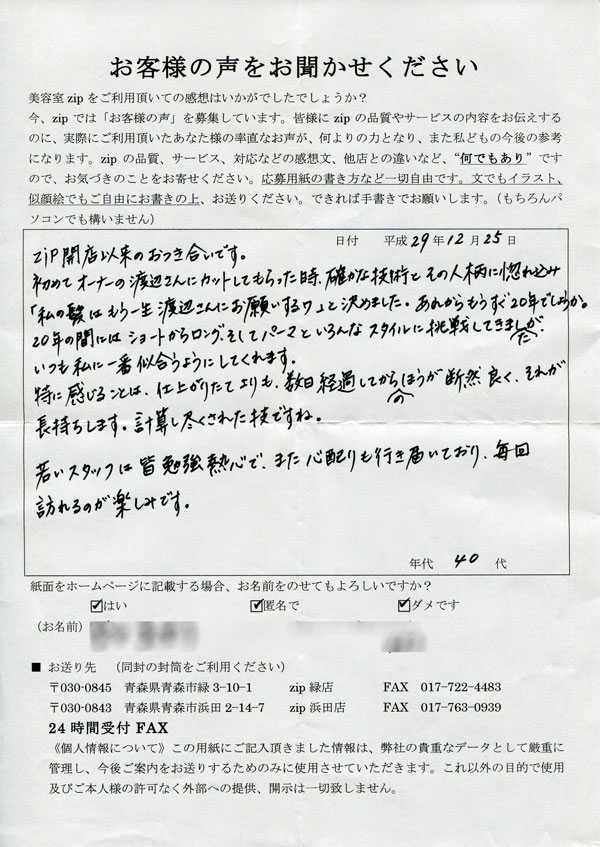 お客様の声をお聞かせください
美容室 zip をご利用頂いての感想はいかがでしたでしょうか？
今、zip では「お客様の声」を募集しています。皆様に zip の品質やサービスの内容をお伝えする
のに、実際にご利用頂いたあなた様の率直なお声が、何よりの力となり、また私どもの今後の参考
になります。zip の品質、サービス、対応などの感想文、他店との違いなど、“何でもあり”です
ので、お気づきのことをお寄せください。応募用紙の書き方など一切自由です。文でもイラスト、
似顔絵でもご自由にお書きの上、お送りください。できれば手書きでお願いします。（もちろんパ
ソコンでも構いません）
日付　平成 29 年 12 月 25 日
ZiP開店以来のおつき合いです。
初めてオーナーの渡辺さんにカットしてもらった時、確かな技術とその人柄に惚れ込み
「私の髪はもう一生渡辺さんにお願いするワ」と決めました。あれからもうすぐ20年でしょうか。
20年の間にはショートからロング、そしてパーマといろんなスタイルに挑戦してきましたが、
いつも私に一番似合うようにしてくれます。
特に感じることは、仕上がりたてよりも、数日経過してからのほうが断然良く、それが
長持ちします。計算し尽くされた技ですね。
若いスタッフは皆勉強熱心で、また心配りも行き届いており、毎回
訪れるのが楽しみです。
年代　40　代
紙面をホームページに記載する場合、お名前をのせてもよろしいですか？
☑はい　☑匿名で　☑ダメです
（お名前）
■ お送り先　（同封の封筒をご利用ください）
〒030-0845　青森県青森市緑 3-10-1　zip 緑店　FAX　017-722-4483
〒030-0843　青森県青森市浜田 2-14-7　zip 浜田店　FAX　017-763-0939
24 時間受付 FAX
《個人情報について》この用紙にご記入頂きました情報は、弊社の貴重なデータとして厳重に
管理し、今後ご案内をお送りするためのみに使用させていただきます。これ以外の目的で使用
及びご本人様の許可なく外部への提供、開示は一切致しません。